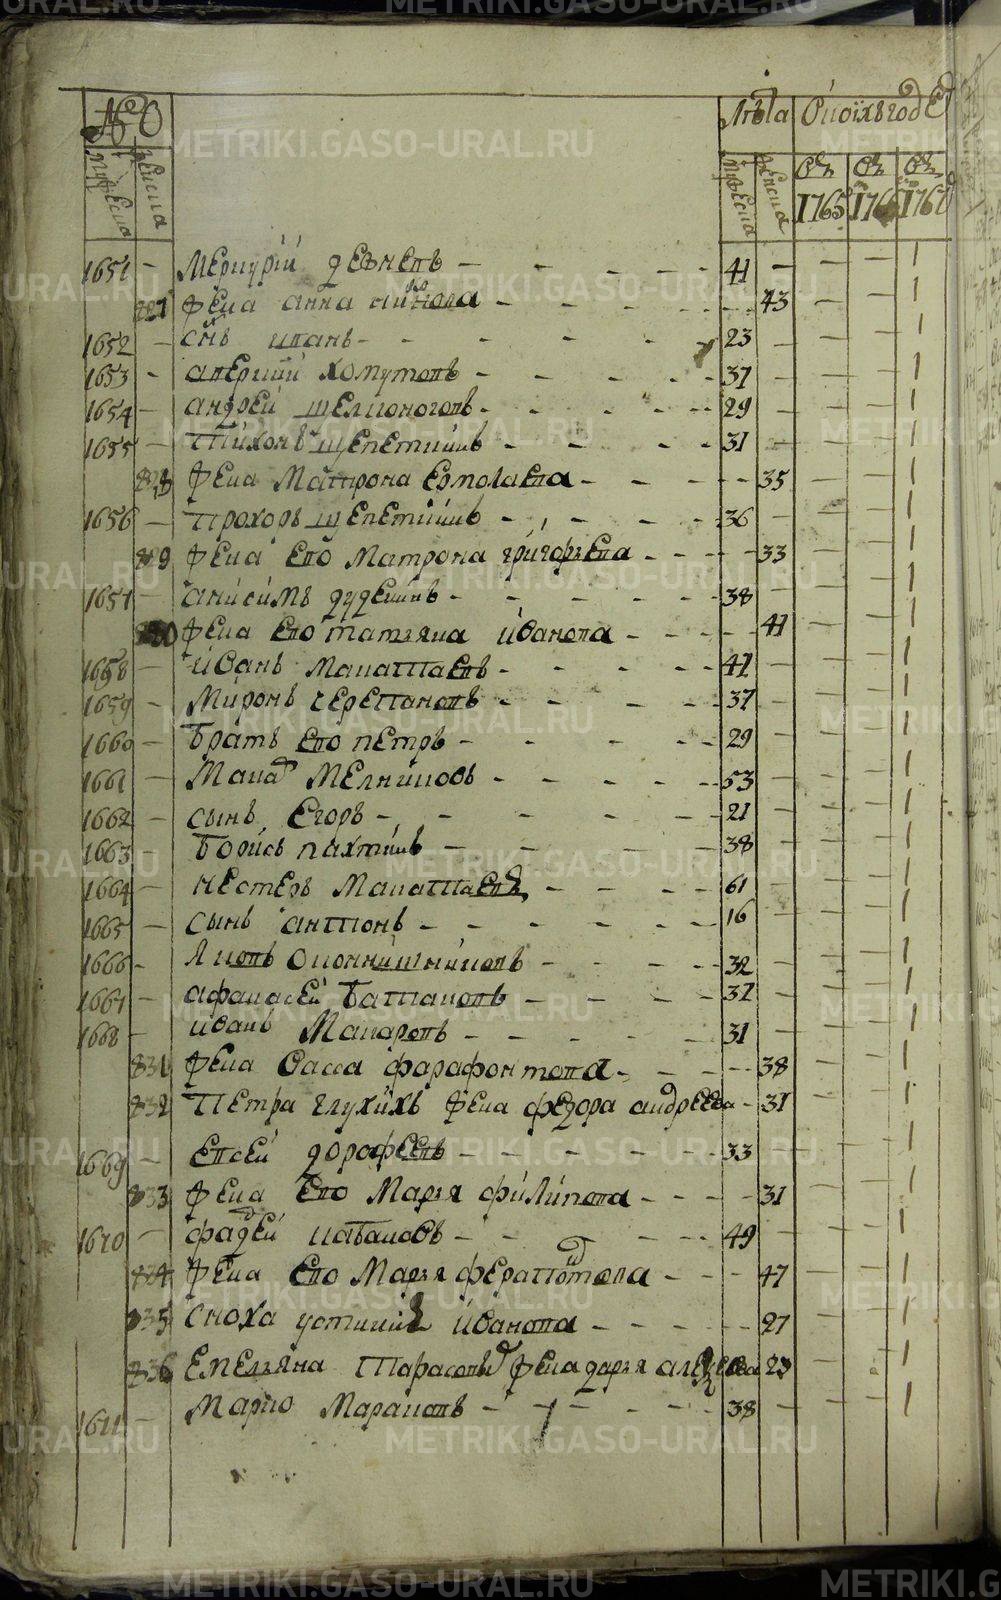 №
Лѣта Которыхъ годѣ
мужеска женска мужеска женска Съ 1765 Съ 1766 Съ 1767
1651 – Меркурїй девневъ – 41 – – – 1
827 жена анна – 43 – – 1
1652 – сн҃ъ иванъ – 23 – – – 1
1653 – аверкий хомутовъ – 37 – – – 1
1654 – андрей щелконоговъ – 29 – – – 1
1655 – Тихонъ щепеткинъ – 31 – – – 1
828 жена Матрона Ермолаева – 35 – – 1
1656 – Прохоръ щепеткинъ – 36 – – – 1
829 жена ево Матрона григорьева – 33 – – 1
1657 – анисимъ дудкинъ – 38 – – – 1
830 жена ево татьяна иванова – 41 – – 1
1658 – иванъ Мапаттаевъ – 41 – – – 1
1659 – Миронъ черепановъ – 37 – – – 1
1660 – братъ ево петръ – 29 – – – 1
1661 – Макаръ Мелниковъ – 53 – – – 1
1662 – сынъ Егоръ – 21 – – – 1
1663 – Борисъ пахтинъ – 38 – – – 1
1664 – нестеръ – 61 – – – 1
1665 – сынъ антонъ – 16 – – – 1
1666 – Яковъ оконнишниковъ – 32 – – – 1
1667 – афанасей Баттановъ – 37 – – – 1
1668 – иванъ Макаровъ – 31 – – – 1
831 жена Васса фарафонтова – 38 – – 1
832 Петра глухихъ жена федора андреева – 31 – – 1
1669 – евсей дорофеевъ – 33 – – – 1
833 жена ево Марья филипова – 31 – – 1
1670 – фадей кабаковъ – 49 – – – 1
834 жена ево Марья ферапонтова – 47 – – 1
835 сноха устинья иванова – 27 – – 1
836 Емельяна Тарасовы жена дарья алексеева 23 – – 1
1671 – Марко Мараковъ – 38 – – – 1
METRIKI.GASO-URAL.RU